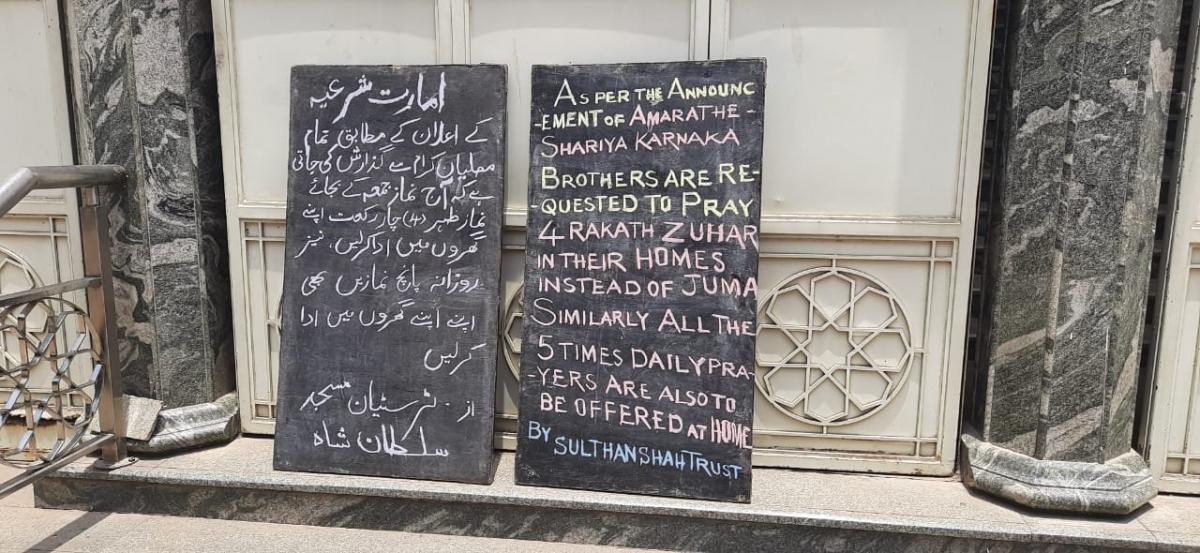 امارت شرعیہ
کے اعلان کے مطابق تمام
مصلیان کرام سے گذارش کی جاتی
ہے کہ آج نماز جمعہ کے بجائے
نماز ظہر (4) چار رکعت اپنے
گھروں میں ادا کرلیں، نیز
روزانہ پانچ نمازیں بھی
اپنے اپنے گھروں میں ادا
کرلیں
از - ٹرسٹیان مسجد
سلطان شاہ
AS PER THE ANNOUNC
-EMENT OF AMARATHE -
SHARIYA KARNAKA
BROTHERS ARE RE-
-QUESTED TO PRAY
4 RAKATH ZUHAR
IN THEIR HOMES
INSTEAD OF JUMA
SIMILARLY ALL THE
5 TIMES DAILY PRA-
-YERS ARE ALSO TO
BE OFFERED AT HOME
BY SULTHAN SHAH TRUST